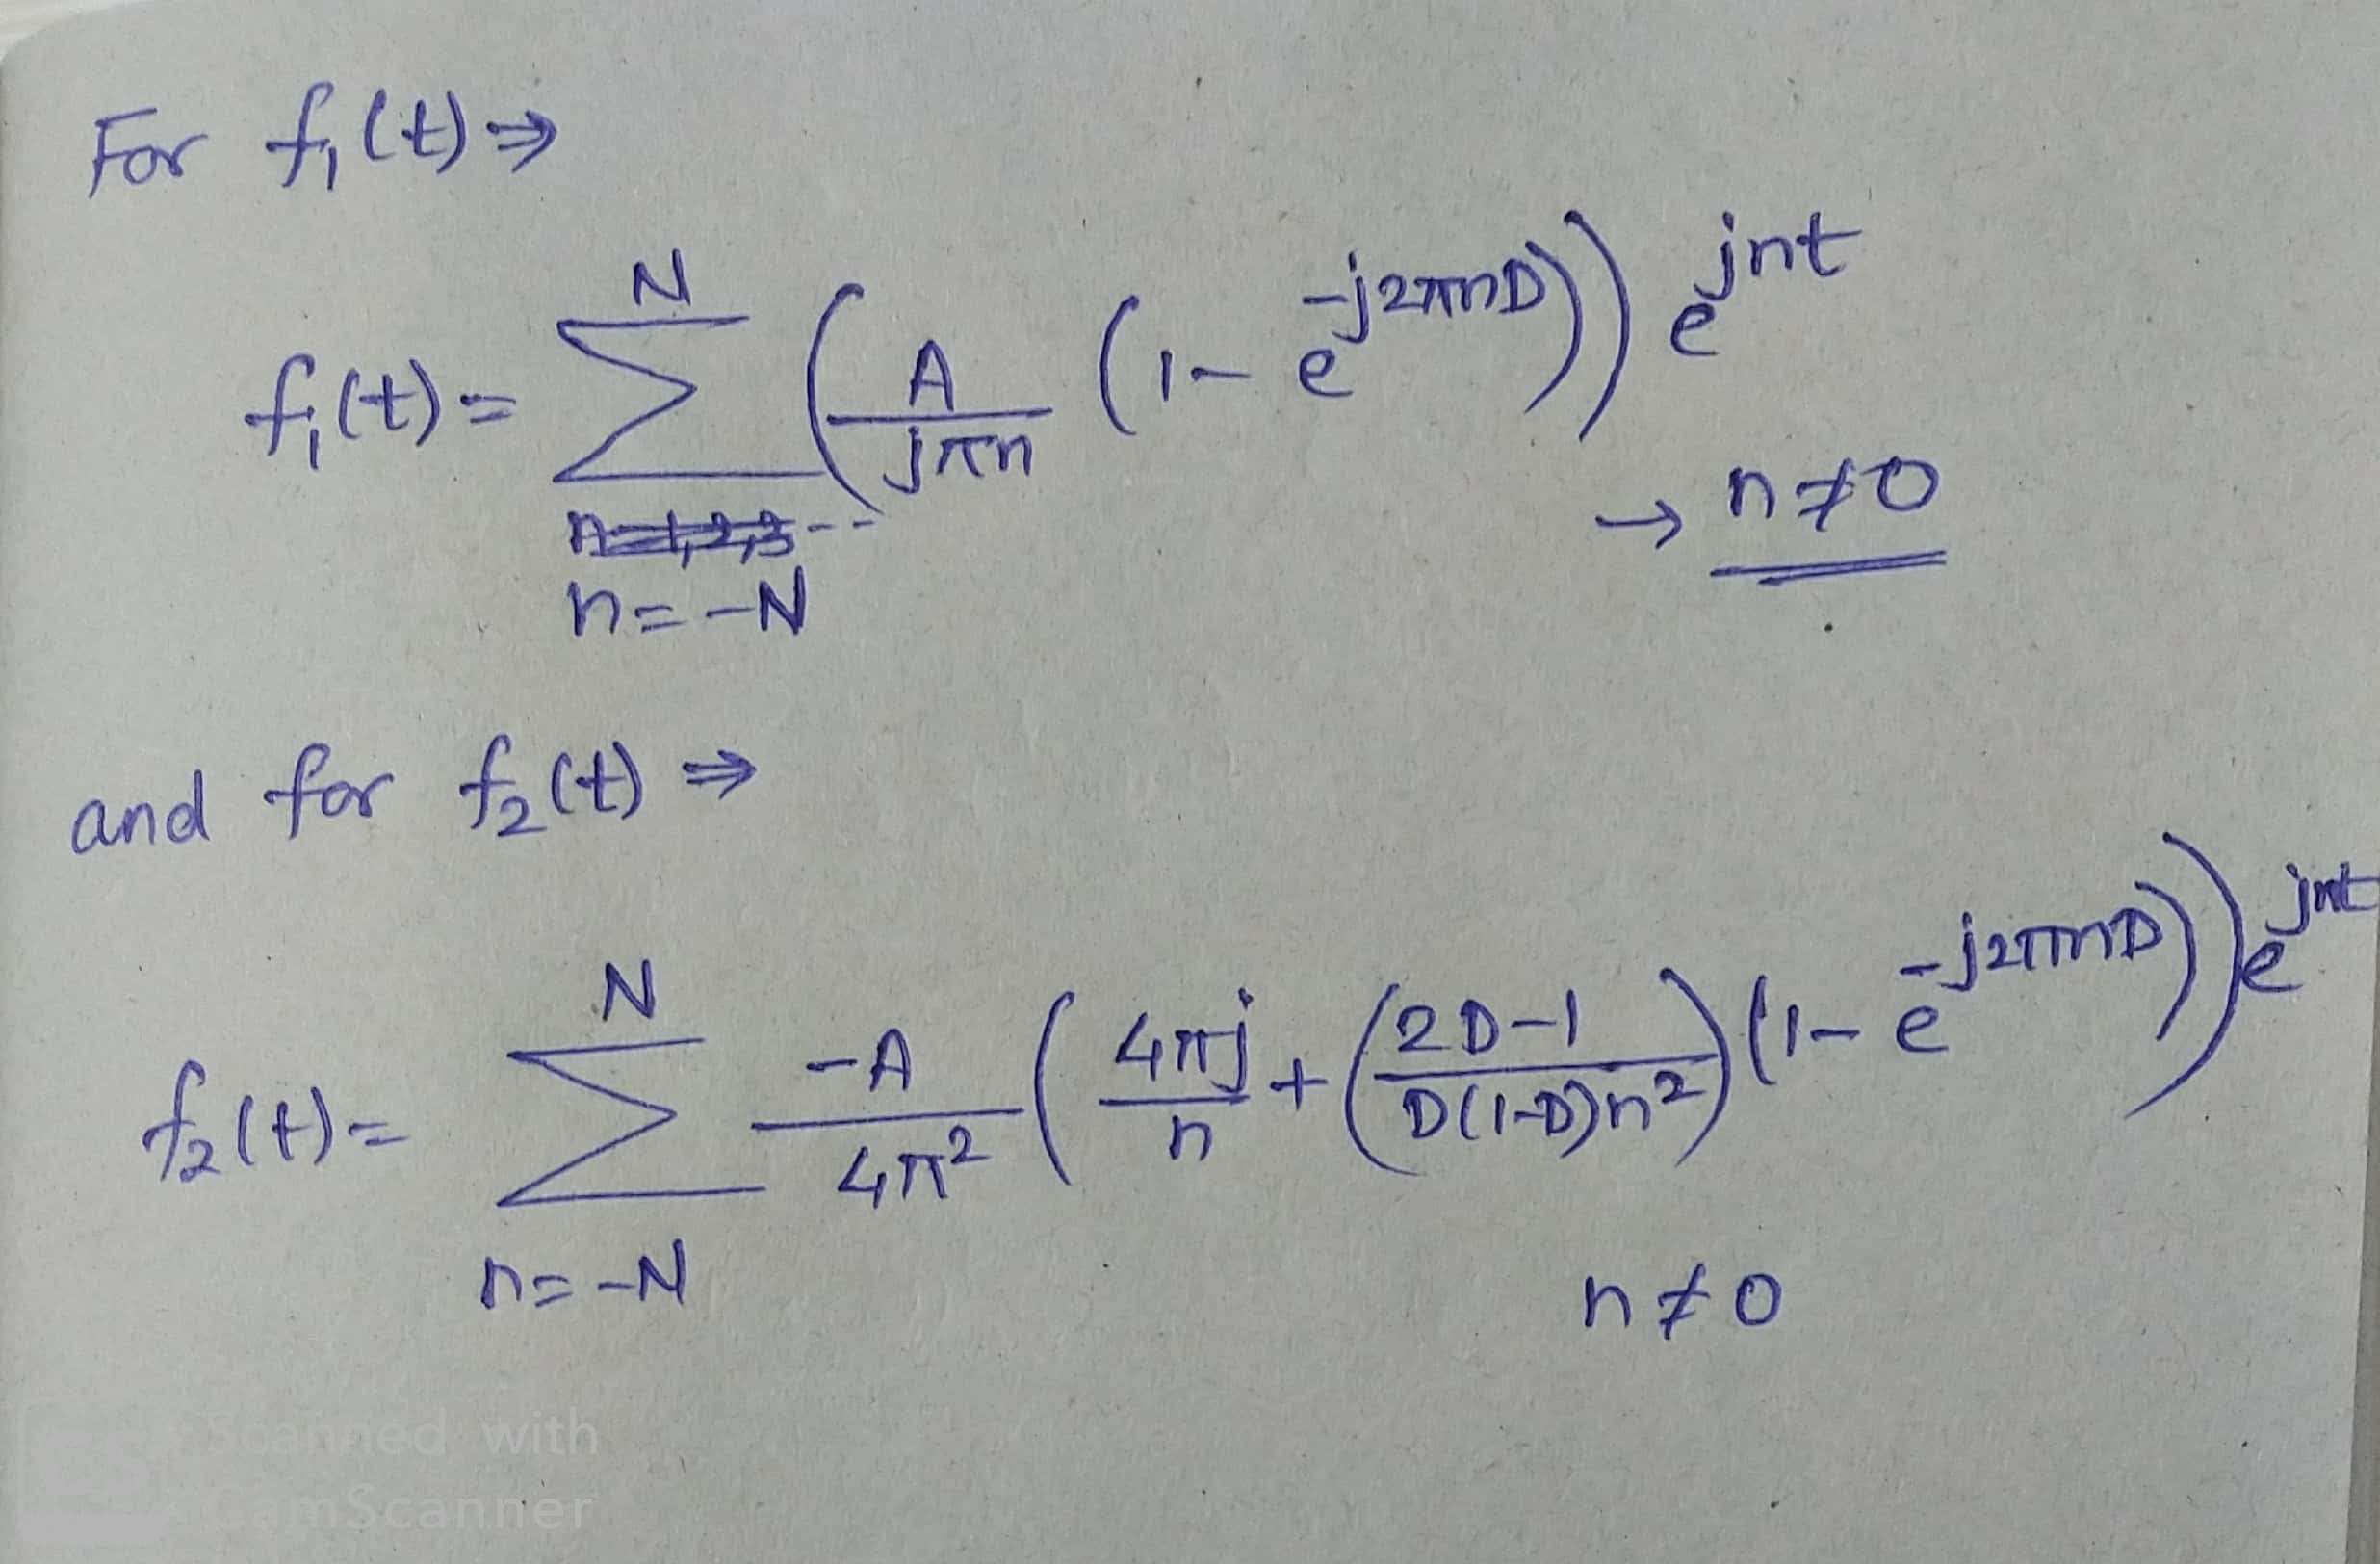 For f₁(t) ⇒
f₁(t) = \sum_{n=-N}^{N} \left( \frac{A}{jπn} (1 - e^{-j2πnD}) \right) e^{jnt}
→ n ≠ 0
~~n=1,2,3--~~
and for f₂(t) ⇒
f₂(t) = \sum_{n=-N}^{N} \frac{-A}{4π²} \left( \frac{4πj}{n} + \left( \frac{2D-1}{D(1-D)n²} \right) (1 - e^{-j2πnD}) \right) e^{jnt}
n ≠ 0
Scanned with
CamScanner